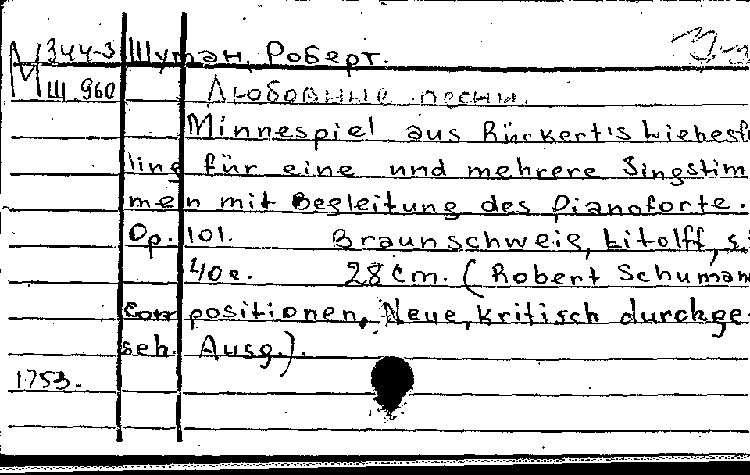 М 344-3 Шуман, Роберт.
Ш 960 Любовные песни.
Minnespiel aus Rückert's Liebesfrüh
ling für eine und mehrere Singstim
men mit Begleitung des Pianoforte.
Op. 101. Braunschweig, Litolff, s.
40 с. 28 cm. (Robert Schuman
Compositionen, Neue, kritisch durchge-
seh. Ausg.).
1753.